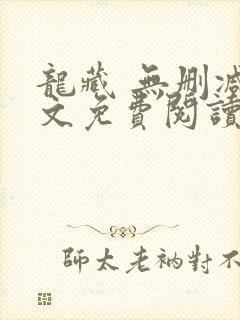 龍藏 無刪減
文免費閱讀
師太老衲對不